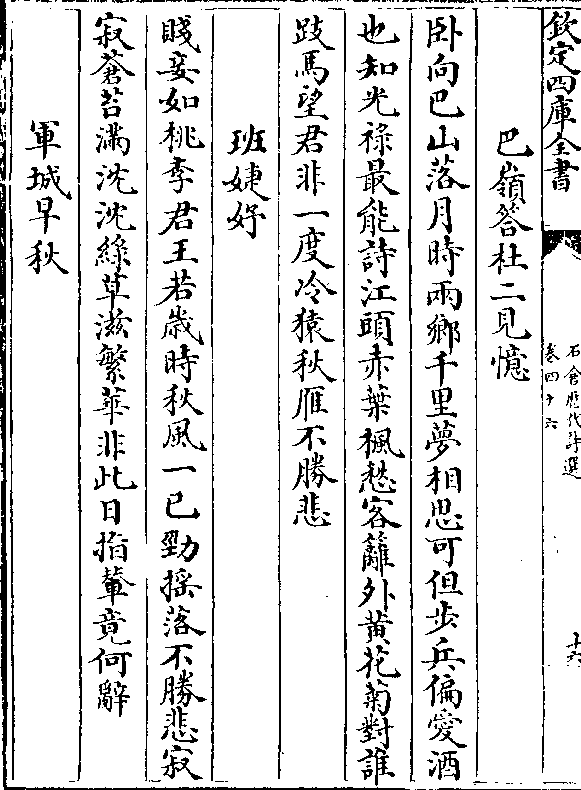 欽定四庫全書
石倉歷代詩選
卷四十六
十六
巴嶺答杜二見憶
卧向巴山落月時兩鄉千里夢相思可但步兵偏愛酒
也知光祿最能詩江頭赤葉楓愁客籬外黄花菊對誰
跂馬望君非一度冷猿秋雁不勝悲
班婕妤
賤妾如桃李君王若歲時秋風一已勁搖落不勝悲寂
寂蒼苔滿沈沈綠草滋繁華非此日指輦竟何辭
軍城早秋